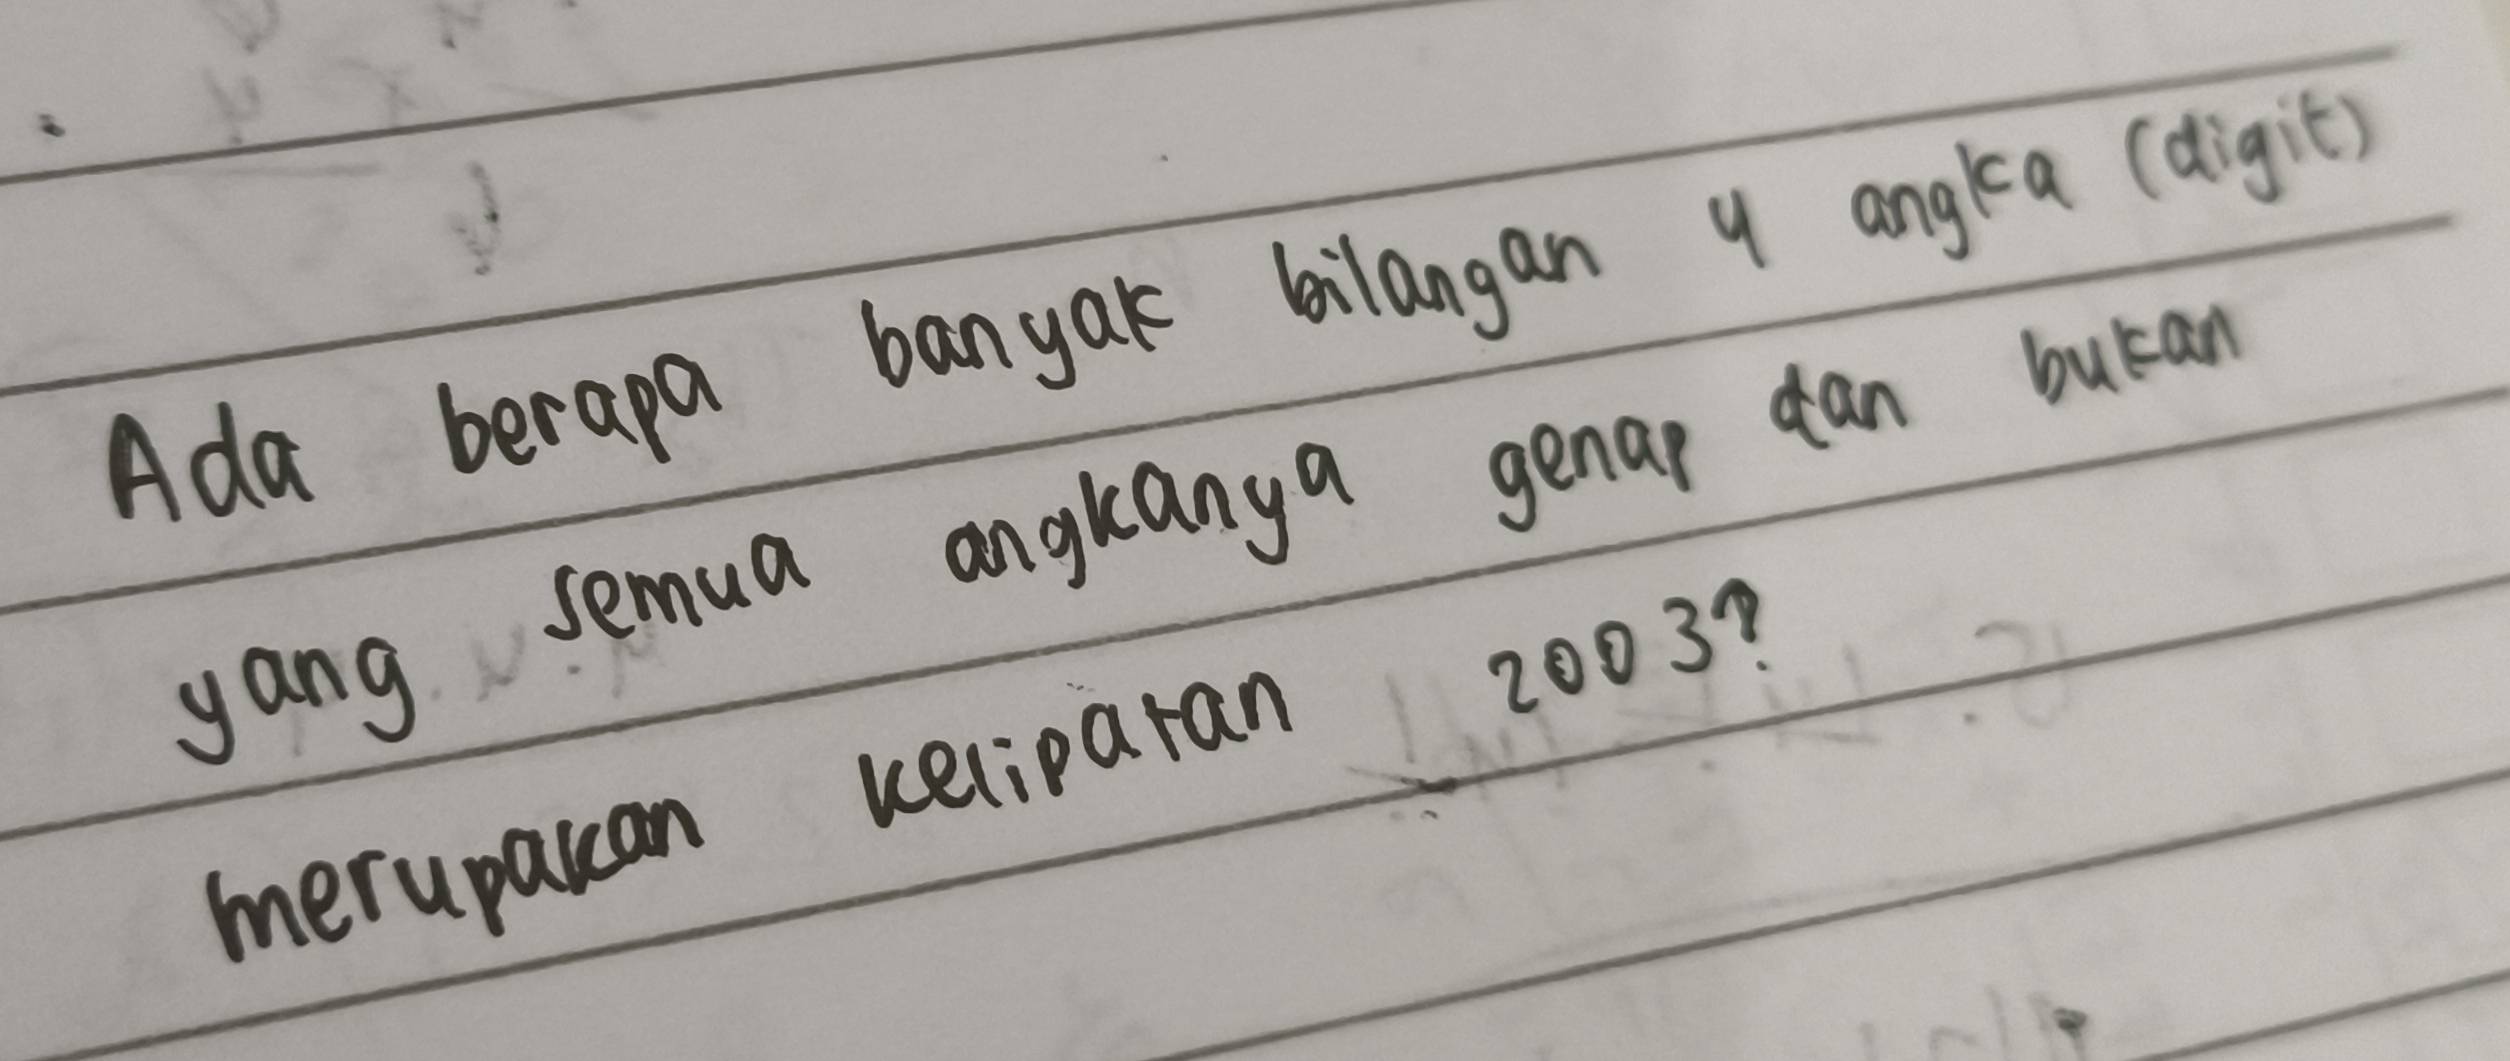 Ada berapa banyak bilangan 4 angka (digit)
yang semua angkanya genap dan bukan
merupakan kelipatan 2003?